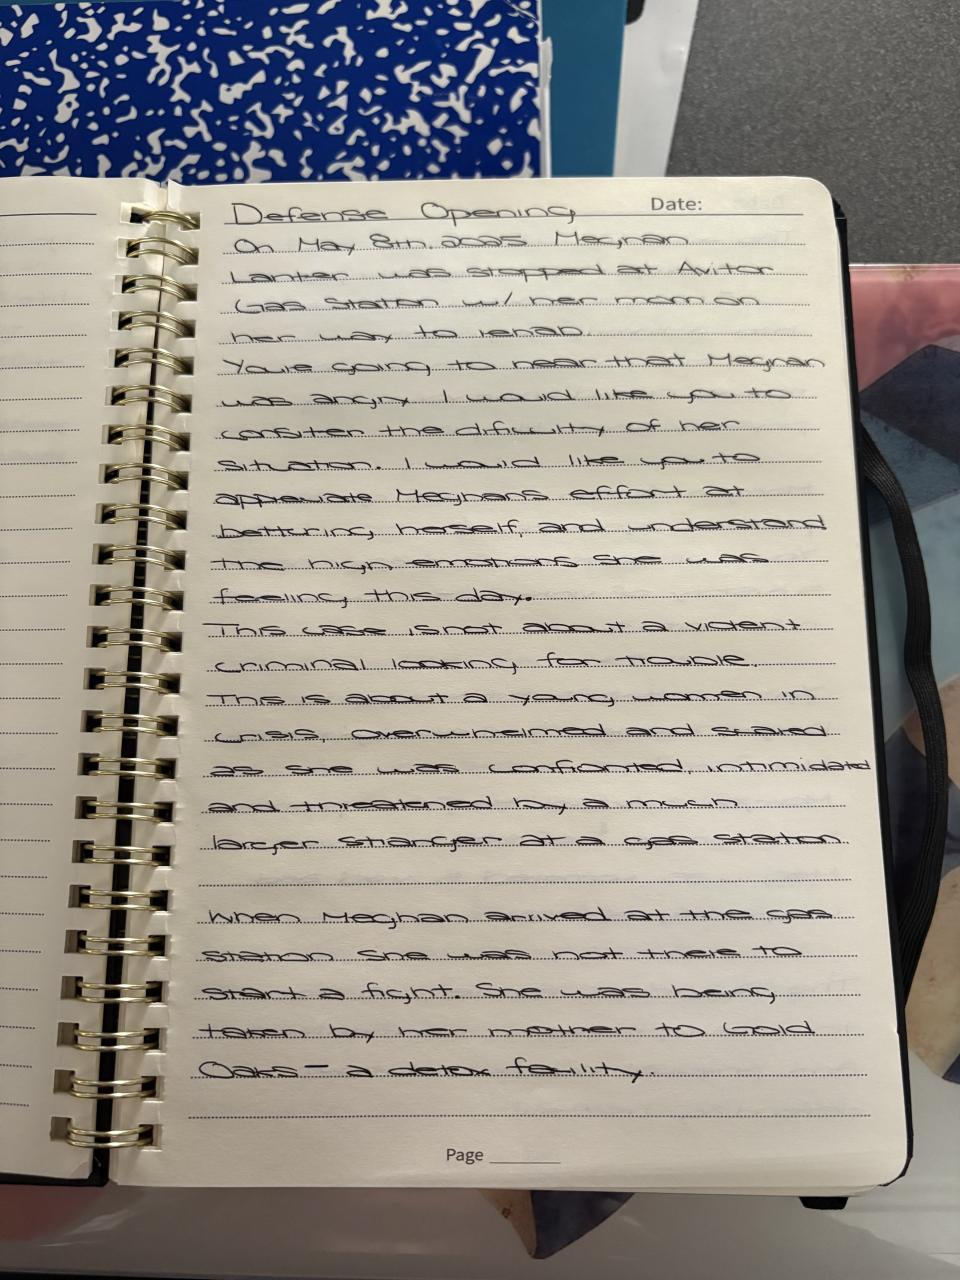 Defense Opening Date:
On May 8th, 2025 Meghan
Lanter was stopped at Avitor
Gas Station w/ her mom on
her way to rehab.
You're going to hear that Meghan
was angry I would like you to
consiter the dificulty of her
situation. I would like you to
appreciate Meghans effort at
bettering herself, and understand
the high emotions she was
feeling this day.
This case is not about a violent
criminal looking for trouble.
This is about a young women in
crisis, overwhelmed and scared
as she was confronted, intimidated
and threatened by a much
larger stranger at a gas station.
When Meghan arrived at the gas
station she was not there to
start a fight. She was being
taken by her mother to Gold
Oaks - a detox facility.
Page